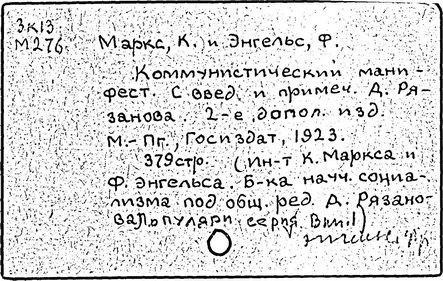 3К13
М276
Маркс, К. и Энгельс, Ф.
Коммунистический мани-
фест. С введ. и примеч. Д. Ря-
занова. 2-е допол. изд.
М.-Пг., Госиздат, 1923.
379стр. (Ин-т К. Маркса и
Ф. Энгельса. Б-ка научн. социа-
лизма под общ. ред. Д. Рязано-
ва. Популярн. серия. Вып. 1)